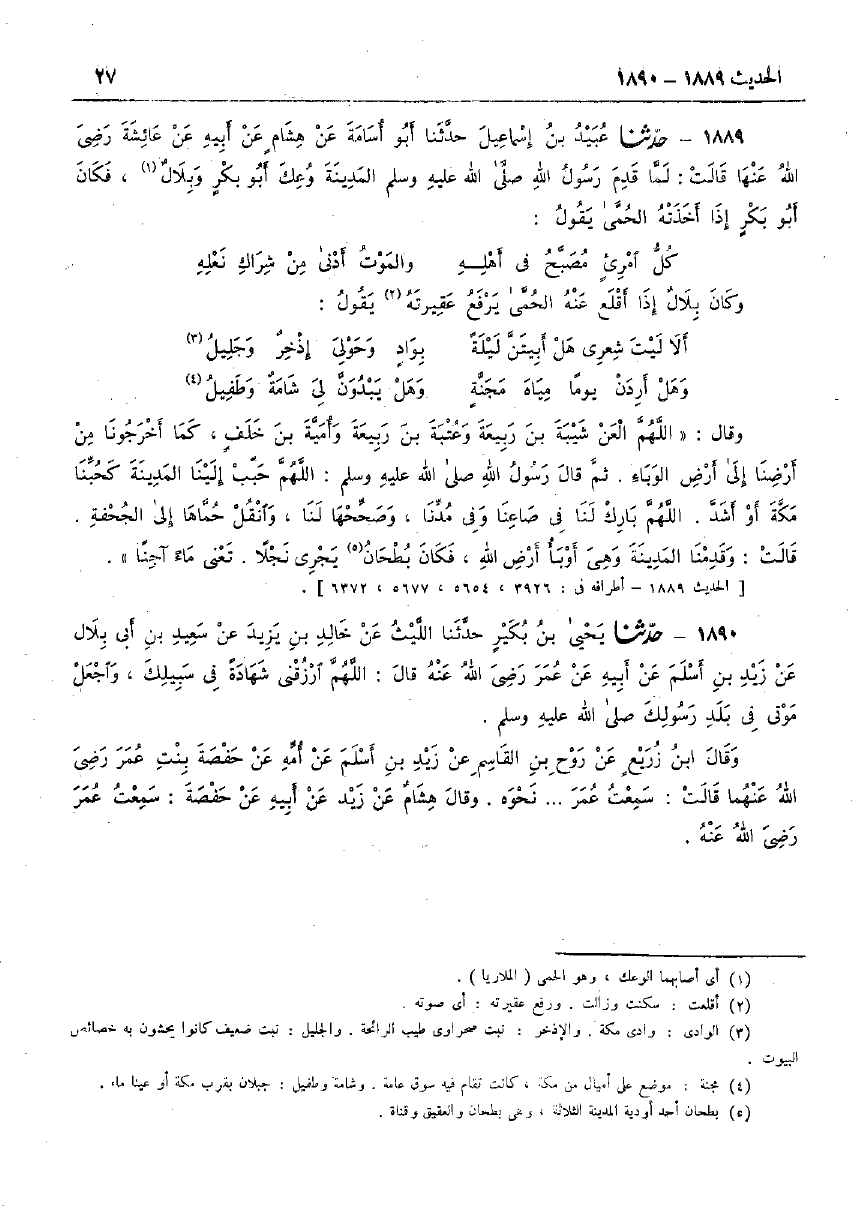 الحديث ١٨٨٩ – ١٨٩٠ ٢٧
١٨٨٩ – حدّثنا عُبَيْدُ بنُ إسْماعيلَ حدَّثَنا أبُو أُسَامَةَ عَنْ هِشَامٍ عَنْ أَبِيهِ عَنْ عَائِشَةَ رَضِيَ
اللهُ عَنْهَا قَالَتْ : لَمَّا قَدِمَ رَسُولُ اللهِ صلَّى الله عليهِ وسلم المَدِينَةَ وُعِكَ أَبُو بكْرٍ وَبِلَالٌ(١) ، فَكَانَ
أَبُو بَكْرٍ إذَا أَخَذَتْهُ الحُمَّىٰ يَقُولُ :
كُلُّ ٱمْرِئٍ مُصَبَّحٌ فى أَهْلِـــهِ والمَوْتُ أَدْنىٰ مِنْ شِرَاكِ نَعْلِهِ
وكَانَ بِلَالٌ إذَا أُقْلَعَ عَنْهُ الحُمَّىٰ يَرْفَعُ عَقِيرتَهُ(٢) يَقُولُ :
أَلَا لَيْتَ شِعرِى هَلْ أَبِيتَنَّ لَيْلَةً بِوَادٍ وَحَوْلِىَ إذْخِرٌ وَجَلِيلُ(٣)
وَهَلْ أَرِدَنْ يومًا مِيَاهَ مَجَنَّةٍ وَهَلْ يَبْدُوَنَّ لِىَ شَامَةٌ وَطَفِيلُ(٤)
وقال : « اللَّهُمَّ الْعَنْ شَيْبَةَ بنَ رَبِيعَةَ وَعُتْبَةَ بنَ رَبِيعَةَ وَأُمَيَّةَ بنَ خَلَفٍ ، كَمَا أَخْرَجُونَا مِنْ
أَرْضِنَا إلَىٰ أَرْضِ الوَبَاءِ . ثمَّ قالَ رَسُولُ اللهِ صلىٰ الله عليهِ وسلم : اللَّهُمَّ حَبِّبْ إلَيْنَا المَدِينَةَ كَحُبِّنَا
مَكَّةَ أَوْ أَشَدَّ . اللَّهُمَّ بَارِكْ لَنَا فى صَاعِنَا وَفِى مُدِّنَا ، وَصَحِّحْهَا لَنَا ، وَٱنْقُلْ حُمَّاهَا إلىٰ الجُحْفَةِ .
قَالَتْ : وَقَدِمْنَا المَدِينَةَ وَهِىَ أَوْبَأُ أَرْضِ اللهِ ، فَكَانَ بُطْحَانُ(٥) يَجْرِى نَجْلًا . تَعْنِى مَاءً آجِنًا » .
[ الحديث ١٨٨٩ – أطرافه فى : ٣٩٢٦ ، ٥٦٥٤ ، ٥٦٧٧ ، ٦٣٧٢ ] .
١٨٩٠ – حدّثنا يَحْيىٰ بنُ بُكَيْرٍ حدَّثَنا اللَّيْثُ عَنْ خَالِدِ بنِ يَزِيدَ عنْ سَعِيدِ بنِ أبى بِلَال
عَنْ زَيْدِ بنِ أَسْلَمَ عَنْ أَبِيهِ عَنْ عُمَرَ رَضِيَ اللهُ عَنْهُ قالَ : اللَّهُمَّ ٱرْزُقْنى شَهَادَةً فِى سَبِيلِكَ ، وَٱجْعَلْ
مَوْتِى فِى بَلَدِ رَسُولِكَ صلىٰ الله عليهِ وسلم .
وَقَالَ ابنُ زُرَيْعٍ عَنْ رَوْحِ بنِ القَاسِمِ عنْ زَيْدِ بنِ أَسْلَمَ عَنْ أُمِّهِ عَنْ حَفْصَةَ بِنْتِ عُمَرَ رَضِيَ
اللهُ عَنْهُما قالَتْ : سَمِعْتُ عُمَرَ ... نَحْوَه . وقالَ هِشَامٌ عَنْ زَيْد عَنْ أَبِيهِ عَنْ حَفْصَةَ : سَمِعْتُ عُمَرَ
رَضِيَ اللهُ عَنْهُ .
(١) أى أصابهما الوعك ، وهو الحمى ( الملاريا ) .
(٢) أقلعت : سكنت وزالت . ورفع عقيرته : أى صوته .
(٣) الوادى : وادى مكة . والإذخر : نبت صحراوى طيب الرائحة . والجليل : نبت ضعيف كانوا يحشون به خصائص
البيوت .
(٤) مجنة : موضع على أميال من مكة ، كانت تقام فيه سوق عامة . وشامة وطفيل : جبلان بقرب مكة أو عينا ماء .
(٥) بطحان أحد أودية المدينة الثلاثة ، وهى بطحان والعقيق وقناة .